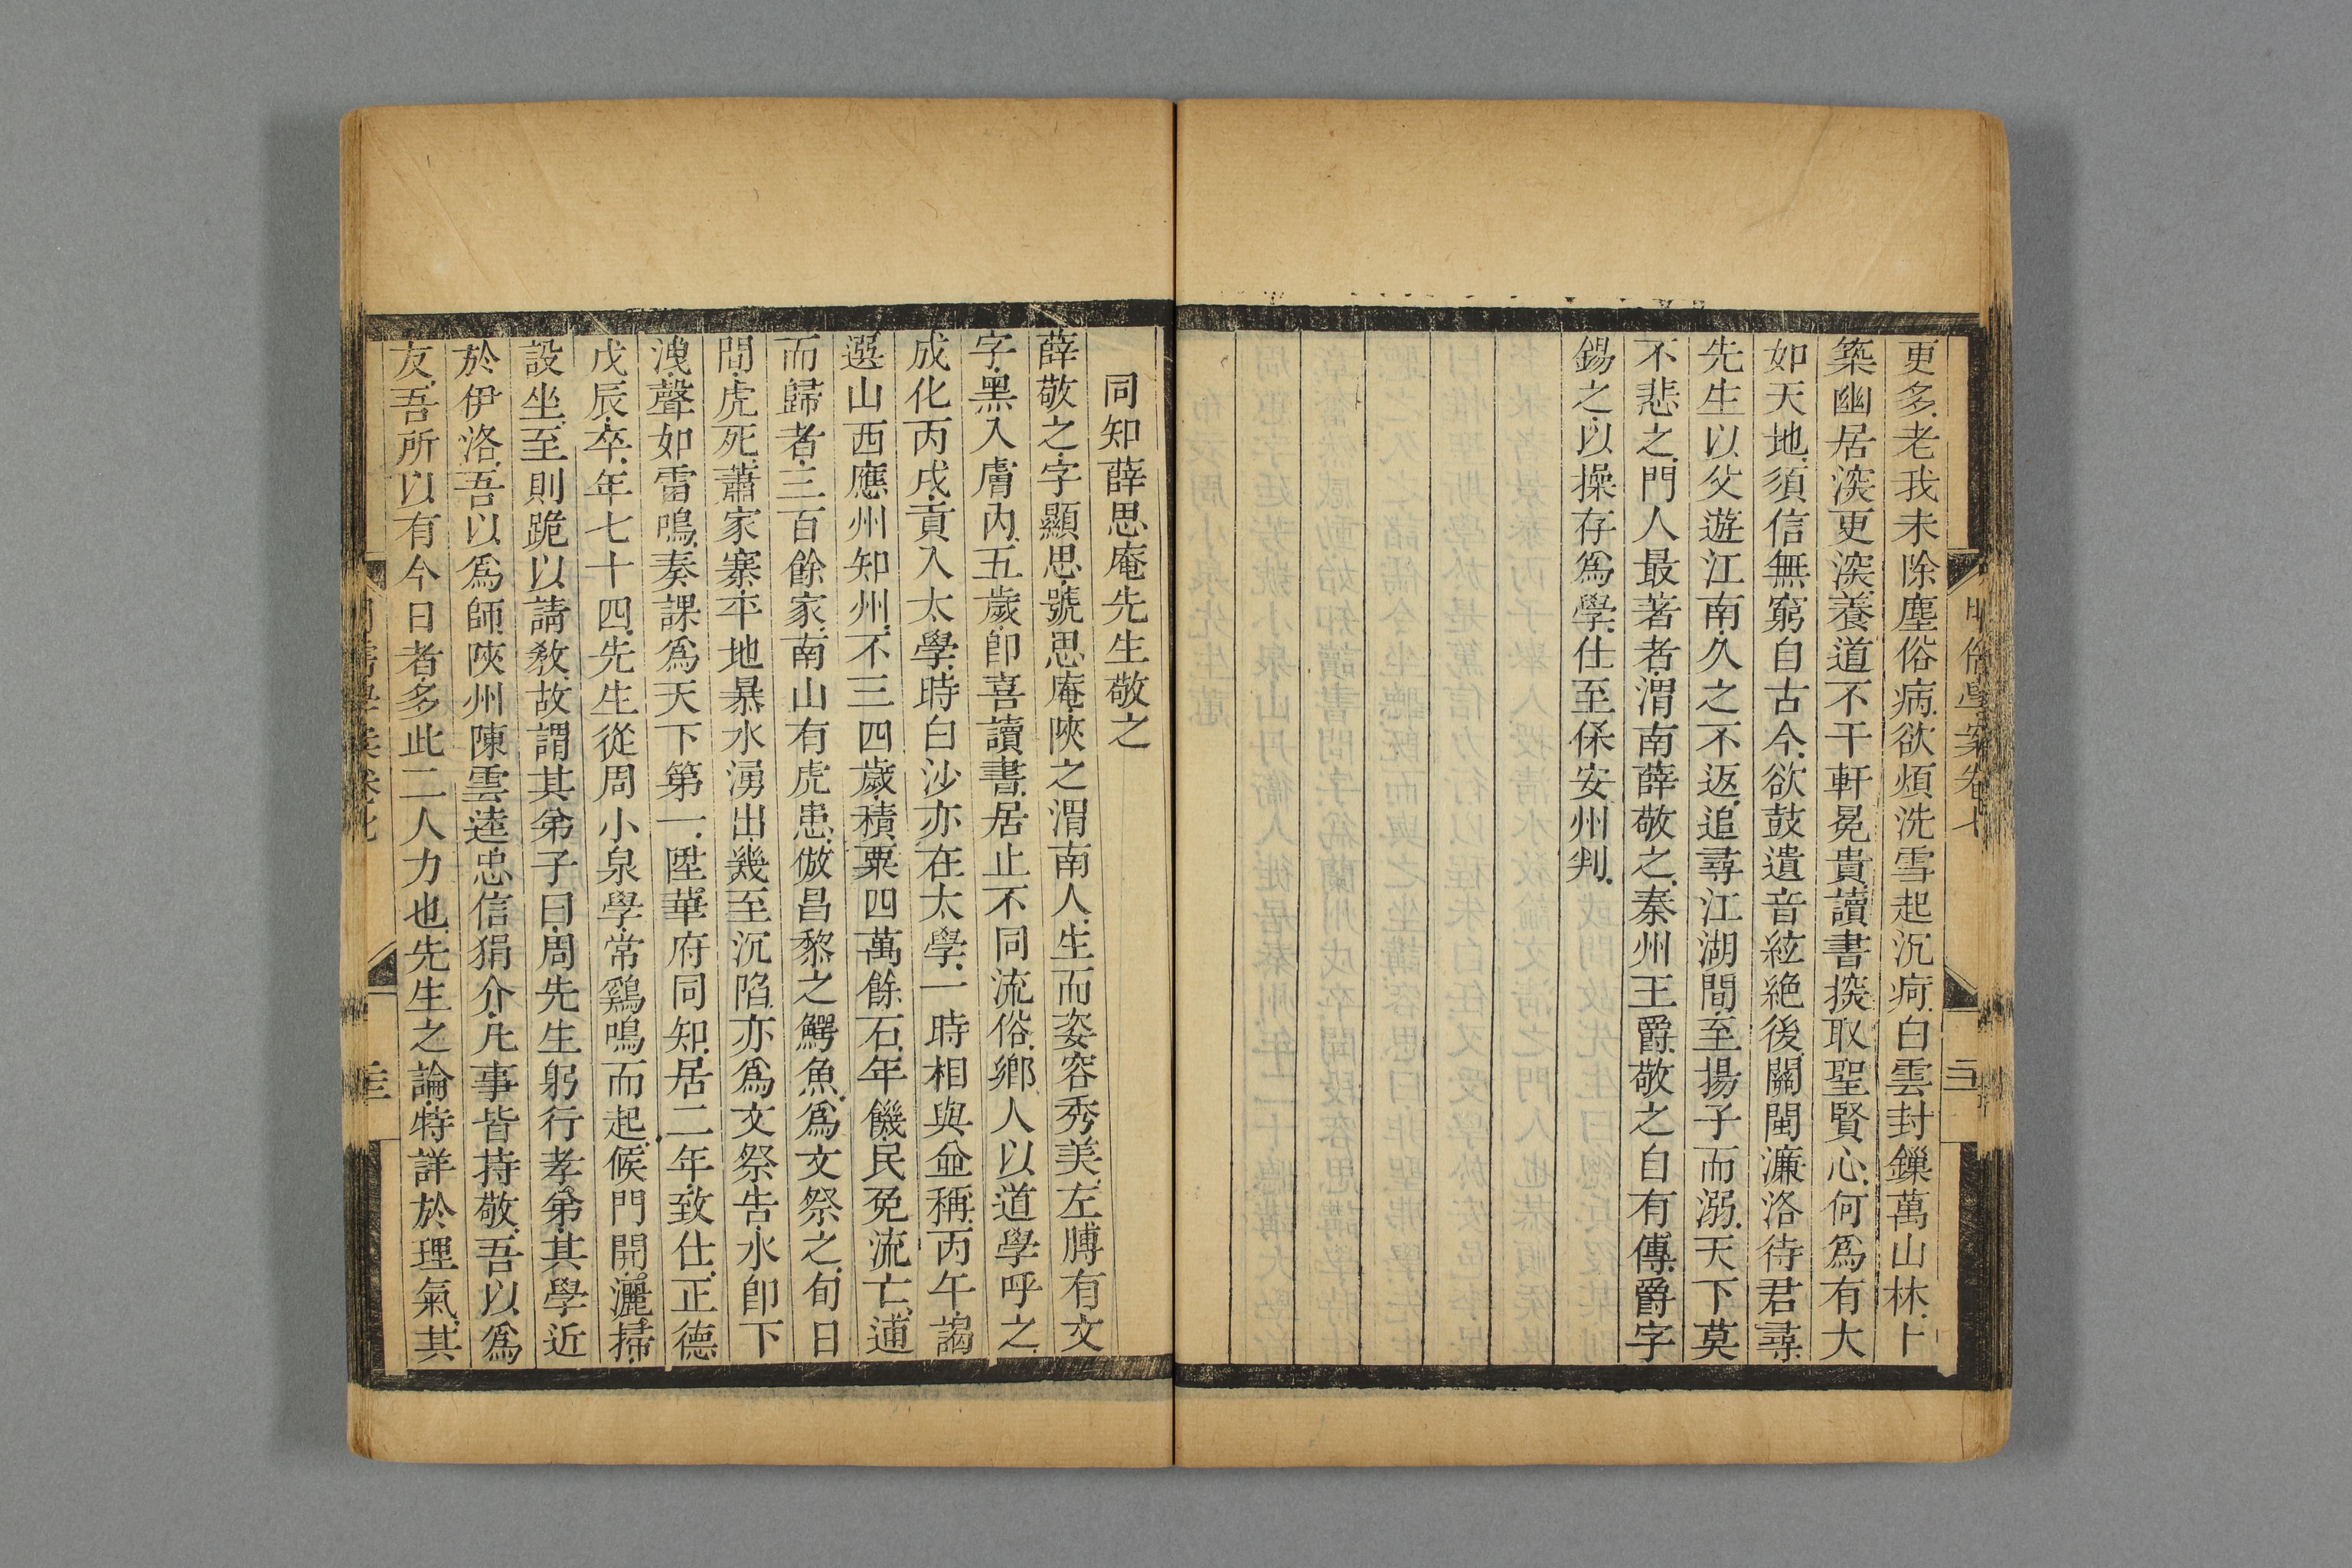 更多老我未除塵俗病欲煩洗雪起沉疴白雲封鎖萬山林卜
築幽居深更深養道不干軒冕貴讀書探取聖賢心何爲有大
如天地須信無窮自古今欲鼓遺音絃絶後關閩濂洛待君尋
先生以父遊江南久之不返追尋江湖間至揚子而溺天下莫
不悲之門人最著者渭南薛敬之秦州王爵敬之自有傳爵字
錫之以操存爲學仕至保安州判
同知薛思庵先生敬之
薛敬之字顯思號思庵陜之渭南人生而姿容秀美左膊有文
字黑入膚內五歲卽喜讀書居止不同流俗鄉人以道學呼之
成化丙戌貢入太學時白沙亦在太學一時相與並稱丙午謁
選山西應州知州不三四歲積粟四萬餘石年饑民免流亡逋
而歸者三百餘家南山有虎患倣昌黎之鰐魚爲文祭之旬日
間虎死蕭家寨平地暴水湧出幾至沉陷亦爲文祭告水卽下
洩聲如雷鳴奏課爲天下第一陞華府同知居二年致仕正德
戊辰卒年七十四先生從周小泉學常鷄鳴而起候門開灑掃
設坐至則跪以請敎故謂其弟子曰周先生躬行孝弟其學近
於伊洛吾以爲師陜州陳雲逵忠信狷介凡事皆持敬吾以爲
友吾所以有今日者多此二人力也先生之論特詳於理氣其